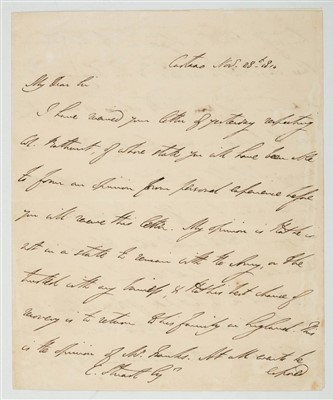 Cartaxo Nov. 28th 1810
My Dear Sir
I have received your letter of yesterday respecting
Col. Bathurst, of whose state you will have been able
to form an opinion from personal experience before
you will receive this letter. My opinion is that he is
not in a state to remain with the Army, or to be
trusted with any business & that his best chance of
recovery is to return to his family in England. This
is the opinion of Mr. Franks. At all events he
C. Stuart Esqr